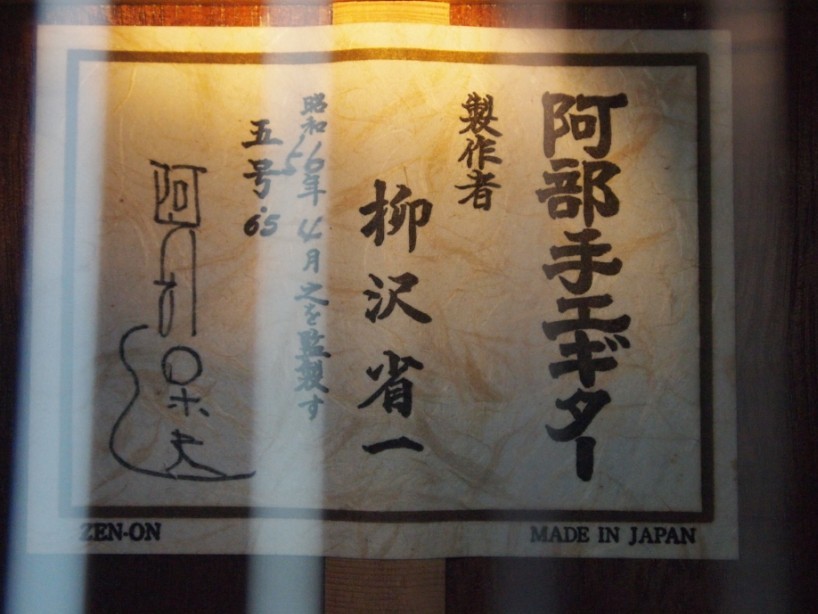 阿部手工ギター
製作者
柳沢省一
昭和56年4月之を監製す
五号.65
ZEN-ON
MADE IN JAPAN